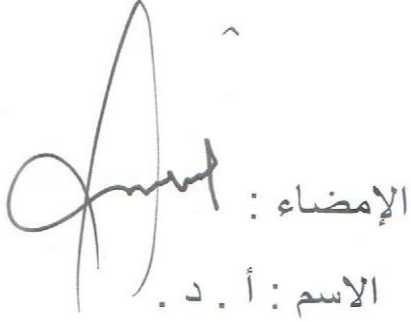 الإمضاء :
الاسم : أ . د .